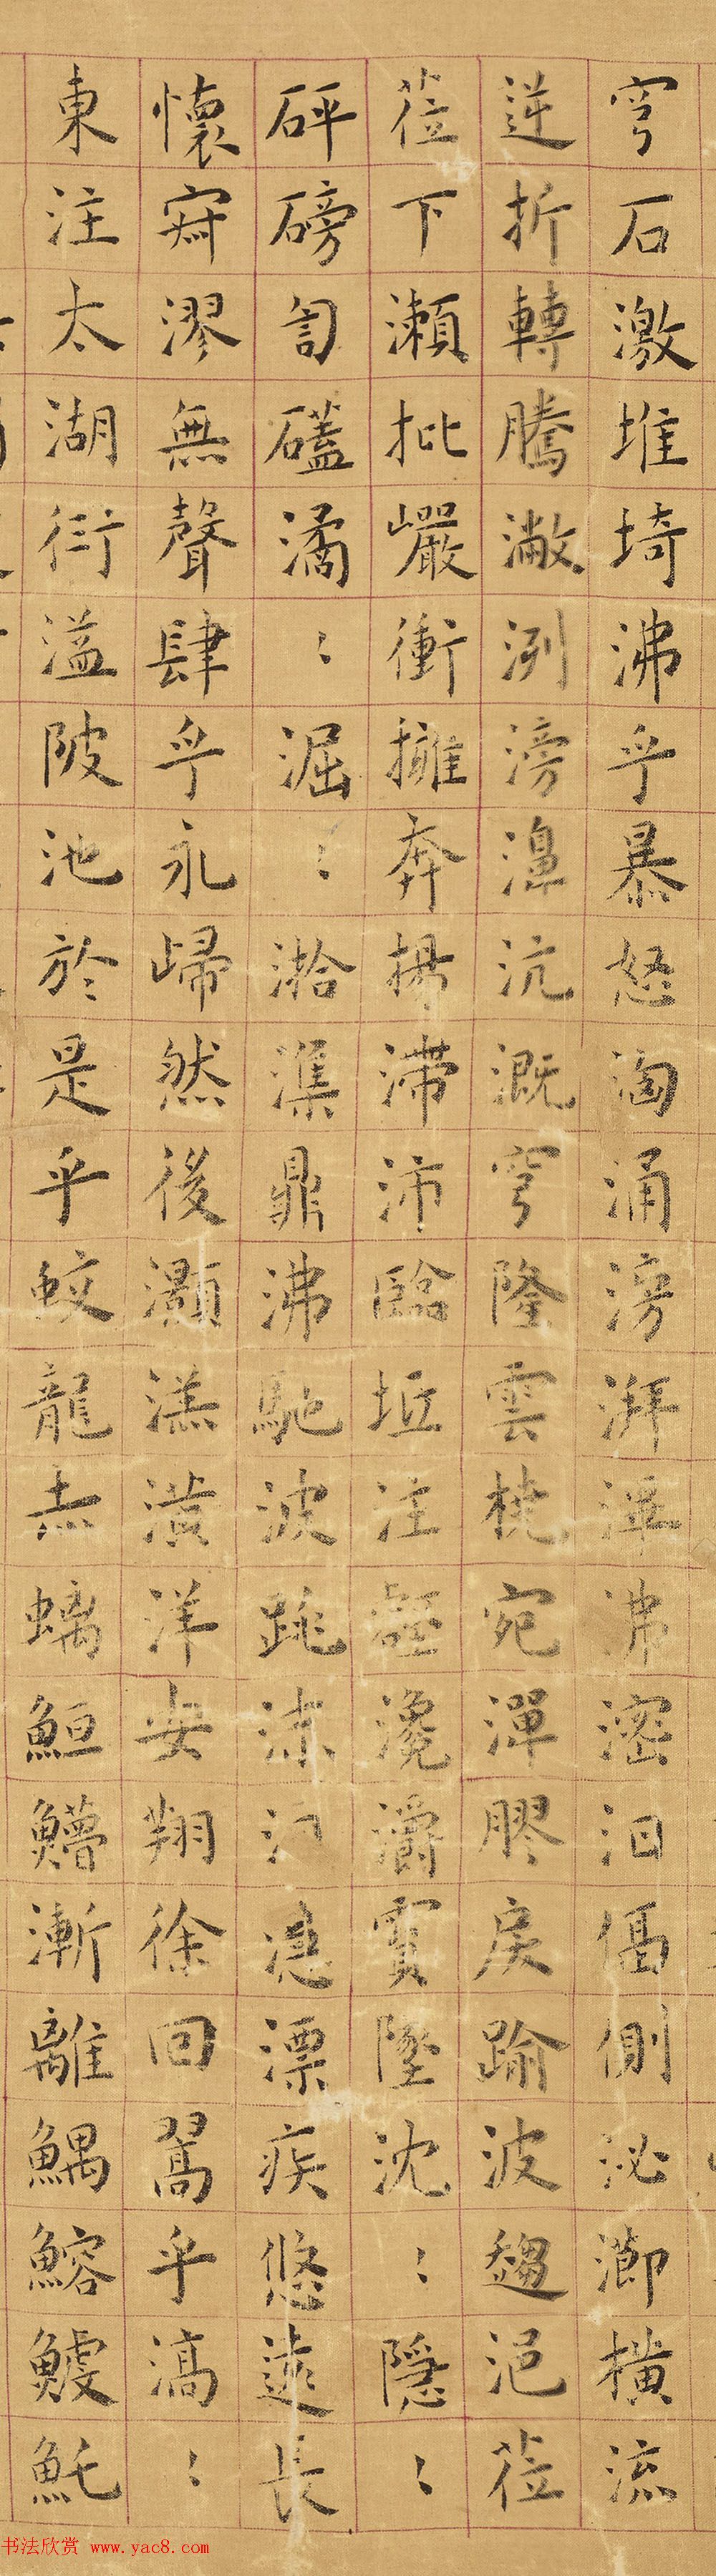 穹石激堆埼沸乎暴怒洶涌滂湃滭沸滵汩偪側泌瀄橫流
逆折轉騰潎洌滂濞沆溉穹隆雲橈宛潬膠戾踰波趨浥蒞
蒞下瀨批巖衝擁奔揚滯沛臨坻注壑瀺灂霣墜沈〻隱〻
砰磅訇礚潏〻淈〻湁潗鼎沸馳波跳沫汩㴔漂疾悠遠長
懷寂漻無聲肆乎永歸然後灝溔潢洋安翔徐回翯乎滈〻
東注太湖衍溢陂池於是乎蛟龍赤螭䱭䲛漸離鰅鰫鰬魠
书法欣赏 www.yac8.com